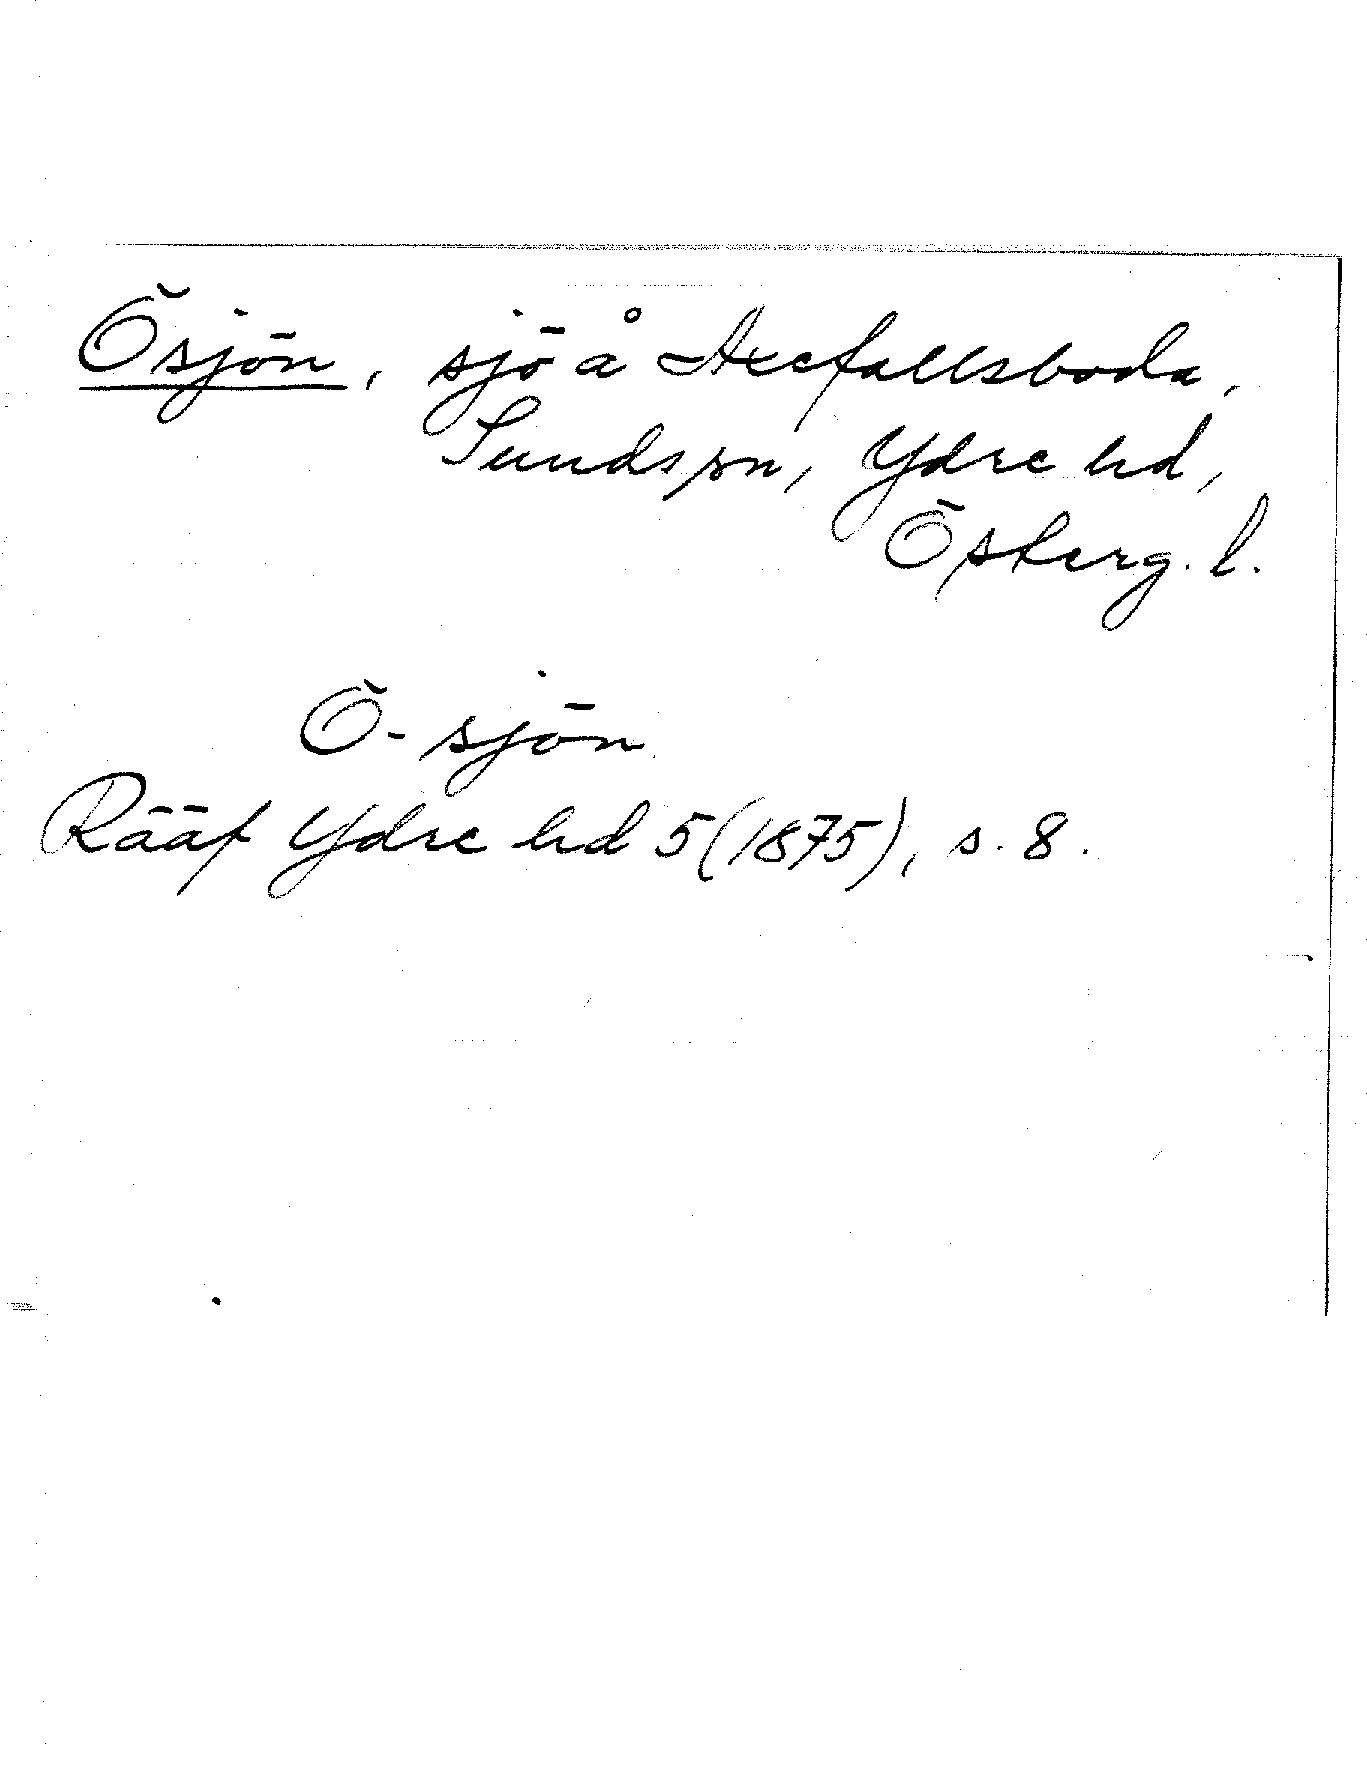 Ösjön, sjö å Axefallsboda,
Sunds sn, Ydre hd,
Österg. l.
Ö-sjön
Rääf Ydre hd 5 (1875), s. 8.